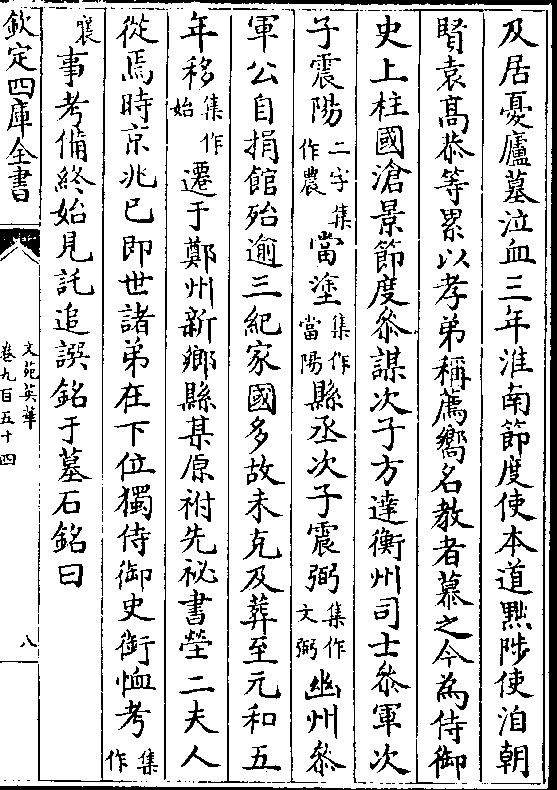 及居憂廬墓泣血三年淮南節度使本道黜陟使洎朝
賢袁髙恭等累以孝弟稱薦嚮名教者慕之今為侍御
史上柱國滄景節度叅謀次子方達衡州司士叅軍次
子震陽二字集作農當塗集作當陽縣丞次子震弼集作文弼幽州叅
軍公自捐館殆逾三紀家國多故未克及葬至元和五
年移集作始遷于鄭州新鄉縣某原祔先祕書塋二夫人
從焉時京兆已即世諸弟在下位獨侍御史銜恤考集作
襄事考備終始見託追譔銘于墓石銘曰
欽定四庫全書
文苑英華
卷九百五十四
八